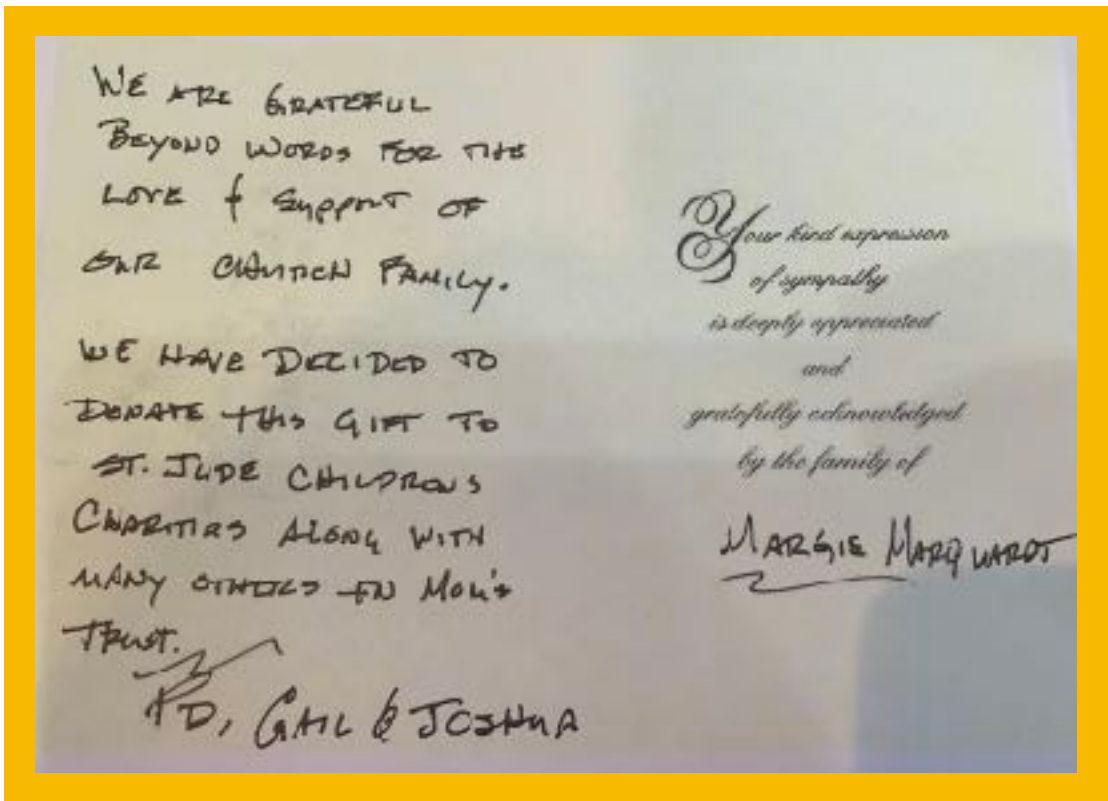 WE ARE GRATEFUL
BEYOND WORDS FOR THE
LOVE & SUPPORT OF
OUR CHURCH FAMILY.
WE HAVE DECIDED TO
DONATE THIS GIFT TO
ST. JUDE CHILDRENS
CHARITIES ALONG WITH
MANY OTHERS IN MOM'S
TRUST.
PD, GAIL & JOSHUA
Your kind expression
of sympathy
is deeply appreciated
and
gratefully acknowledged
by the family of
MARGIE MARQUARDT